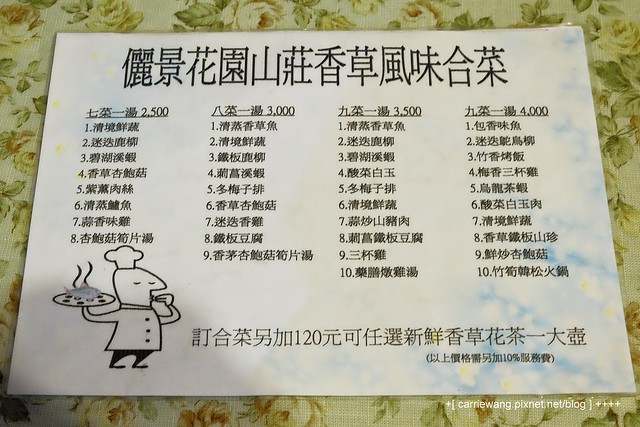 儷景花園山莊香草風味合菜
七菜一湯 2,500
1.清境鮮蔬
2.迷迭鹿柳
3.碧湖溪蝦
4.香草杏鮑菇
5.紫薰肉絲
6.清蒸鱸魚
7.蒜香味雞
8.杏鮑菇筍片湯
八菜一湯 3,000
1.清蒸香草魚
2.清境鮮蔬
3.鐵板鹿柳
4.莿菖溪蝦
5.冬梅子排
6.香草杏鮑菇
7.迷迭香雞
8.鐵板豆腐
9.香茅杏鮑菇筍片湯
九菜一湯 3,500
1.清蒸香草魚
2.迷迭鹿柳
3.碧湖溪蝦
4.酸菜白玉
5.冬梅子排
6.清境鮮蔬
7.蒜炒山豬肉
8.莿菖鐵板豆腐
9.三杯雞
10.藥膳燉雞湯
九菜一湯 4,000
1.包香味魚
2.迷迭鴕鳥柳
3.竹香烤飯
4.梅香三杯雞
5.烏龍茶蝦
6.酸菜白玉肉
7.清境鮮蔬
8.香草鐵板山珍
9.鮮炒杏鮑菇
10.竹筍韓松火鍋
訂合菜另加120元可任選新鮮香草花茶一大壺
(以上價格需另加10%服務費)
+[ carriewang.pixnet.net/blog ] ++++